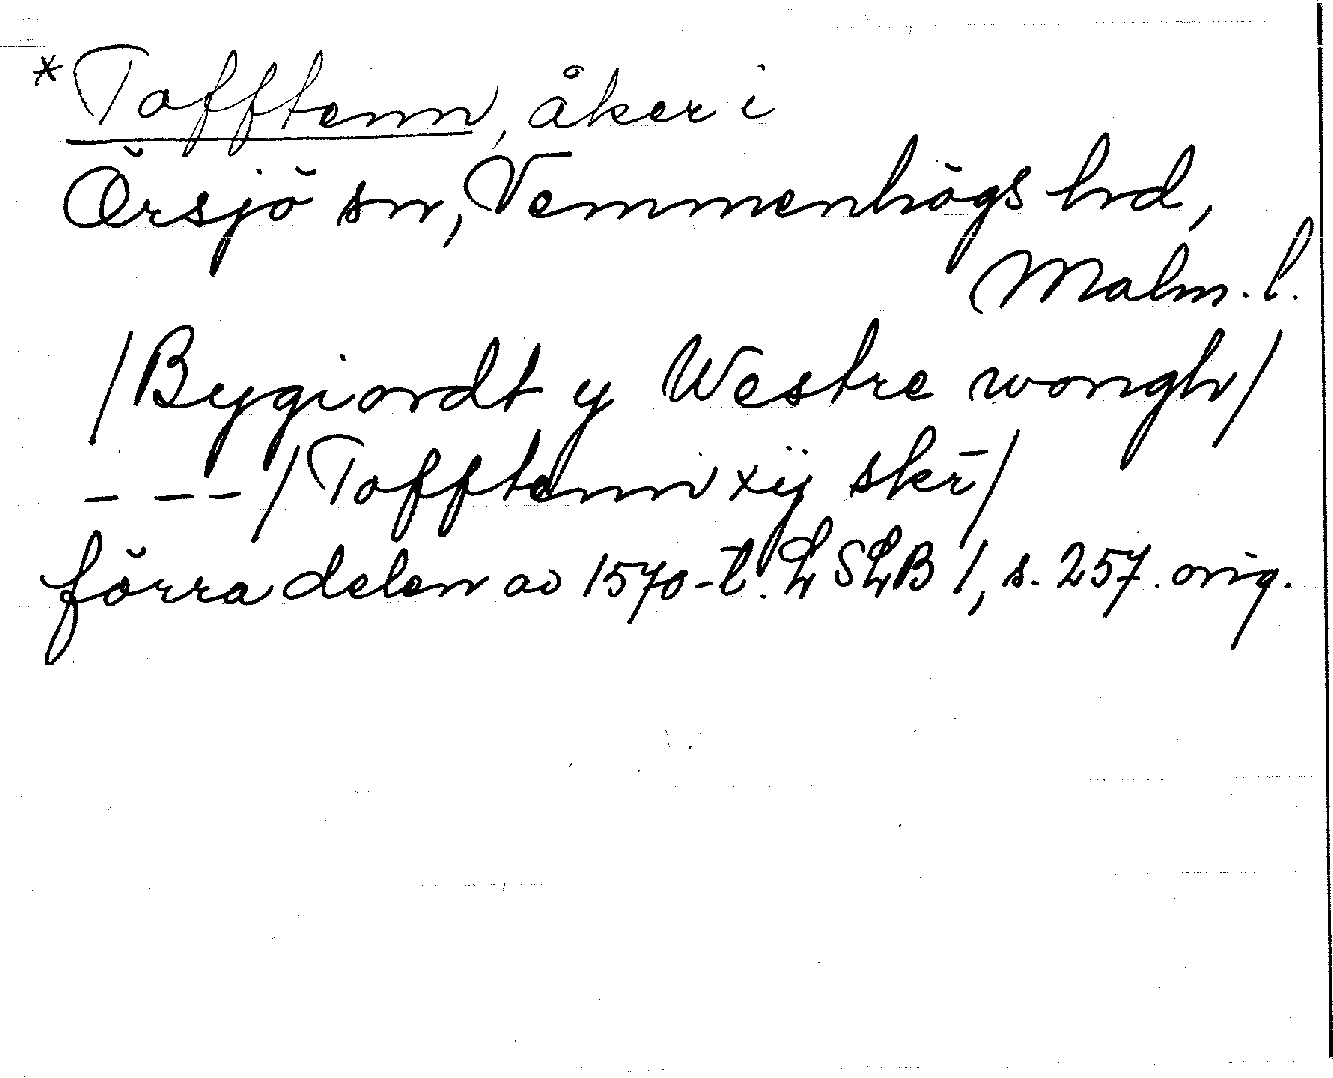 *Tofftenn, åker i
Örsjö sn, Vemmenhögs hrd,
Malm. l.
/Bygiordt y Westre wongh/
– – – /Tofftenn xij skr̄/
förra delen av 1570-t. LSLB 1, s. 257. orig.